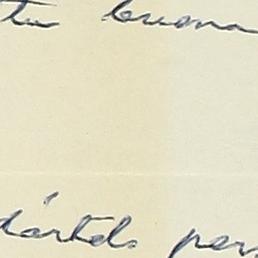 tu buena
dártela per